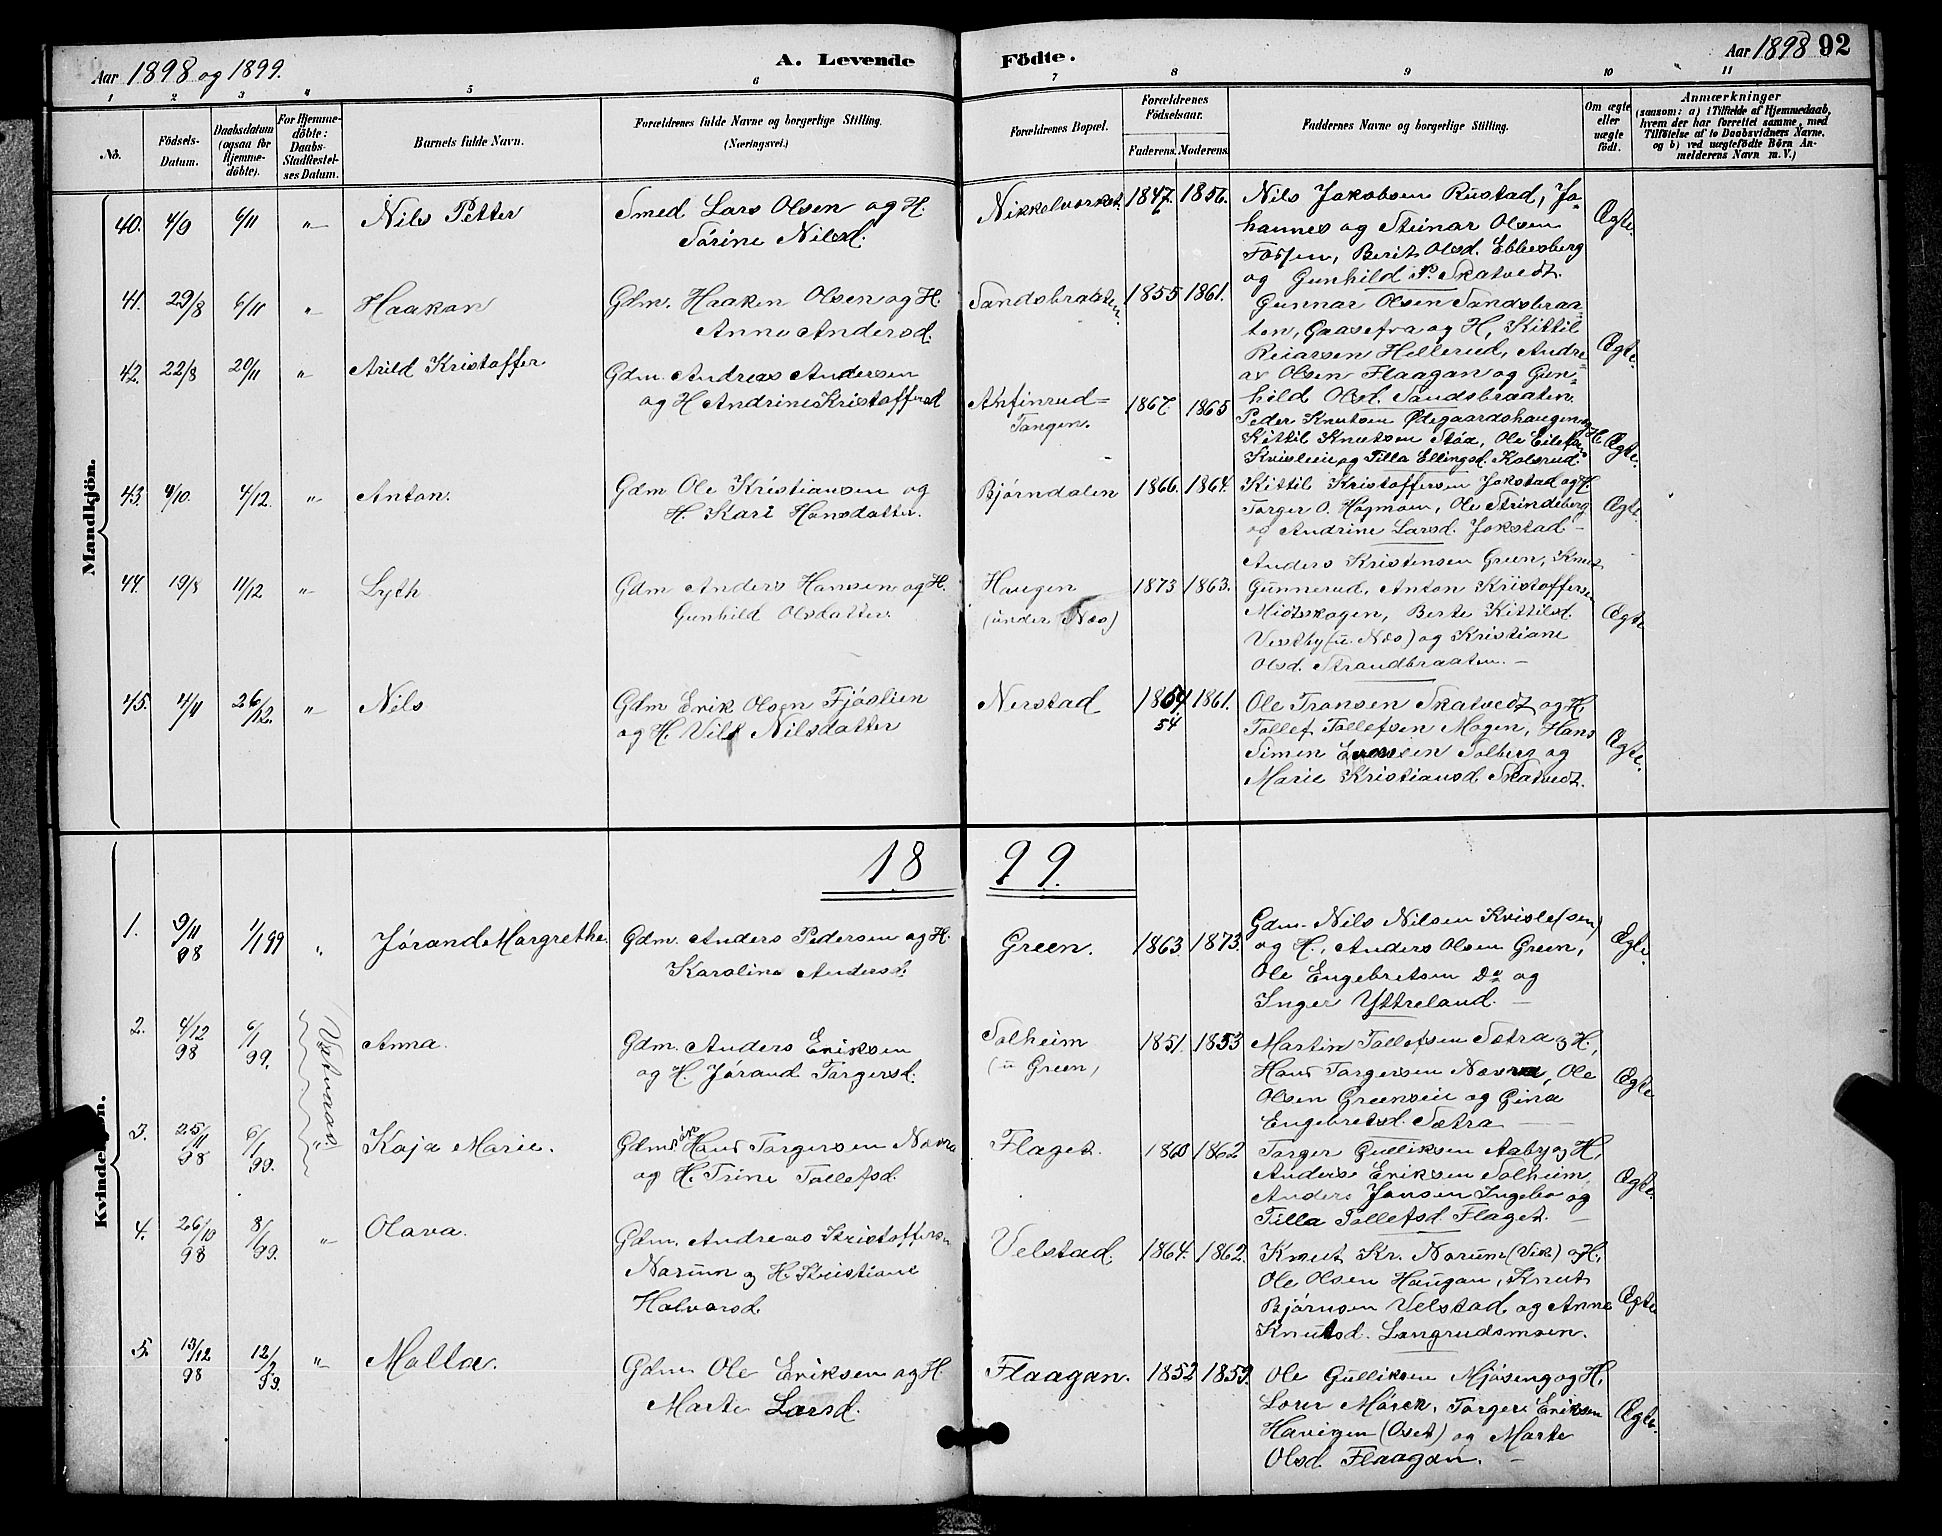 Aar 1898 og 1899.
A. Levende Födte.
Aar 1898 92
1 2 3 4 5 6 7 8 9 10 11
No.
Födsels-Datum.
Daabsdatum (ogsaa for Hjemmedöbte).
For Hjemmedöbte: Daabs-Stadfestelses Datum.
Barnets fulde Navn.
Forældrenes fulde Navne og borgerlige Stilling.
(Næringsvei.)
Forældrenes Bopæl.
Forældrenes Födselsaar.
Faderens. Moderens.
Faddernes Navne og borgerlige Stilling.
Om ægte eller uægte födt.
Anmærkninger
(saasom: a) i Tilfælde af Hjemmedaab,
hvem der har forrettet samme, med
Tilföielse af to Daabsvidners Navne,
og b) ved uægtefödte Börn An-
melderens Navn m. V.)
Mandkjön.
40. 4/9 6/11 " Nils Petter
Smed Lars Olsen og H.
Sørine Nilsd.
Nikkelverket. 1847. 1856.
Nils Jakobsen Rustad, Jo-
hannes og Steinar Olsen
Fossen, Berit Olsd. Ebbesberg
og Gunhild P. Skatvedt.
Ægte.
41. 29/8 6/11 " Haakon
Gdm. Haaken Olsen og H.
Anne Andersd.
Sandsbraaten. 1855 1861.
Gunnar Olsen Sandsbraa-
ten, Gaasefra og H, Kittil
Reiarsen Hellerud, Andre-
as Olsen Flaagan og Gun-
hild Olsd. Sandsbraaten.
Ægte.
42. 22/8 20/11 " Arild Kristoffer
Gdm. Andreas Andersen
og H Andrine Kristoffersd
Anfinrud-
Tangen. 1867. 1865
Peder Knutsen Ødegaardshaugen og H.
Kittil Knutsen Støa, Ole Eilefsen
Kvisleie og Tilla Ellingsd. Kolsrud.
Ægte.
43. 4/10. 4/12. " Anton.
Gdm Ole Kristiansen og
H. Kari Hansdatter.
Bjørndalen 1866. 1864.
Kittil Kristoffersen Jokstad og H.
Torger O. Hagmoen, Ole Strindeberg
og Andrine Larsd. Jokstad -
Ægte.
44. 19/8 11/12 " Lyth
Gdm Anders Hansen og H.
Gunhild Olsdatter.
Haugen
(under Næs) 1873 1863.
Anders Kristensen Green, Knut
Gunnerud, Anton Kristoffersen
Midtskogen, Berte Kittilsd.
Vestby (u. Næs) og Kristiane
Olsd. Strandbraaten. -
Ægte
45. 4/11 26/12. " Nils
Gdm Erik Olsen Fjøslien
og H. Vilt Nilsdatter
Nerstad 1854 1861.
54
Ole Transen Skatvedt og H.
Tollef Tollefsen Mogen, Hans
Simen Evensen Solberg og
Marie Kristiansd Skatvedt.
Ægte.
1899.
Kvindekjön.
1. 9/11 98 1/1 99 " Jørand Margrethe.
Gdm. Anders Pedersen og H.
Karoline Andersd.
Green. 1863 1873.
Gdm. Nils Nilsen Kvisle(sen)
og H., Anders Olsen Green,
Ole Engebretsen Do og
Inger Yttreland. -
Ægte.
2. 4/12 98 6/1 99. Anna.
Gdm. Anders Eriksen
og H. Jørand Torgersd.
Solheim
(u Green) 1851. 1853
Martin Tollefsen Sætra og H,
Hans Torgersen Navra, Ole
Olsen Greenseie og Gina
Engebretsd. Sætra
Ægte
3. 25/11 98 6/1 99. " Kaja Marie.
Gdmsøn Hans Torgersen Navra
og H. Trine Tollefsd.
Flaget. 1860 1862
Torger Gulliksen Aaby og H,
Anders Eriksen Solheim,
Anders Jonsen Ingebo og
Tilla Tollefsd. Flaget. -
Ægte.
4. 26/10 98 8/1 99. " Olava.
Gdm. Andreas Kristoffersen
Norum og H. Kristiane
Halvorsd.
Velstad. 1864. 1862.
Knut Kr. Norum (Vik) og H,
Ole Olsen Haugan, Knut
Bjørnsen Velstad og Anne
Knutsd. Langrudsmoen.
Ægte
5. 13/12 98 12/2 99. " Malla.
Gdm Ole Eriksen og H.
Marte Larsd.
Flaagan. 1852 1859.
Ole Gulliksen Mjøseng og H,
Lorer Mørck, Torger Eriksen
Havigen (Oset) og Marte
Olsd. Flaagan. -
Ægte.